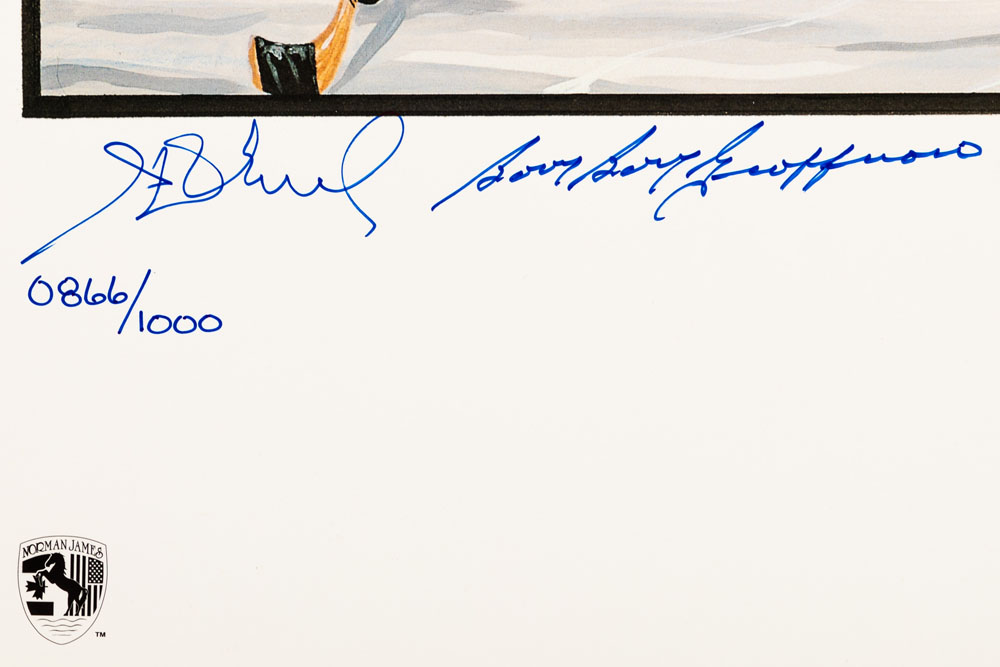 Boom Boom Geoffrion
0866/1000
NORMAN JAMES
TM